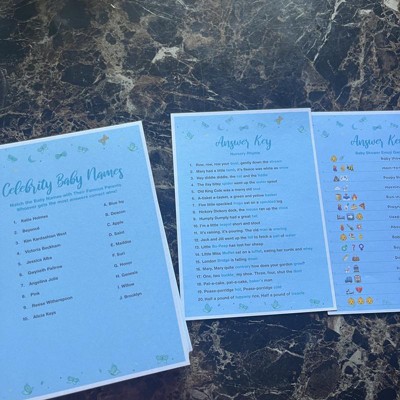 Celebrity Baby Names
Match the Baby Names with Their Famous Parents.
Whoever gets the most answers correct wins!
1. Katie Holmes
2. Beyoncé
3. Kim Kardashian West
4. Victoria Beckham
5. Jessica Alba
6. Gwyneth Paltrow
7. Angelina Jolie
8. Pink
9. Reese Witherspoon
10. Alicia Keys
A. Blue Ivy
B. Deacon
C. Apple
D. Saint
E. Maddox
F. Suri
G. Honor
H. Genesis
I. Willow
J. Brooklyn
Answer Key
Nursery Rhymes
1. Row, row, row your boat, gently down the stream
2. Mary had a little lamb, its fleece was white as snow
3. Hey diddle diddle, the cat and the fiddle
4. The itsy bitsy spider went up the water spout
5. Old King Cole was a merry old soul
6. A-tisket a-tasket, a green and yellow basket
7. Five little speckled frogs sat on a speckled log
8. Hickory Dickory dock, the mouse ran up the clock
9. Humpty Dumpty had a great fall
10. I'm a little teapot short and stout
11. It's raining, it's pouring. The old man is snoring
12. Jack and Jill went up the hill to fetch a pail of water
13. Little Bo Peep has lost her sheep
14. Little Miss Muffet sat on a tuffet, eating her curds and whey
15. London Bridge is falling down
16. Mary, Mary quite contrary how does your garden grow?
17. One, two buckle my shoe. Three, four, shut the door
18. Pat-a-cake, pat-a-cake, baker's man
19. Pease-porridge hot, Pease-porridge cold
20. Half a pound of tuppenny rice, Half a pound of treacle
Answer Key